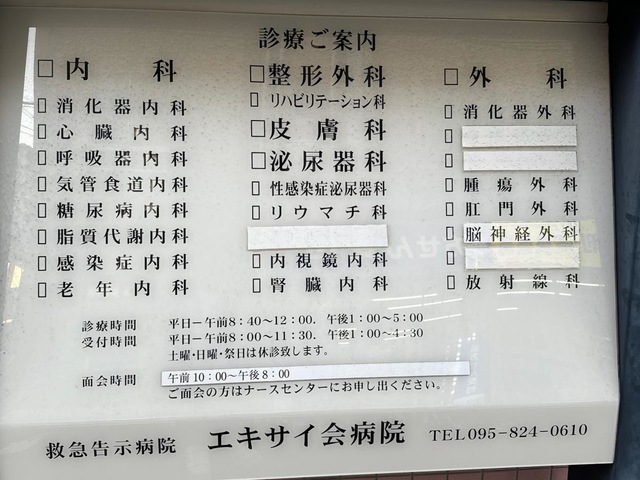 診療ご案内
□内科
□消化器内科
□心臓内科
□呼吸器内科
□気管食道内科
□糖尿病内科
□脂質代謝内科
□感染症内科
□老年内科
□整形外科
□リハビリテーション科
□皮膚科
□泌尿器科
□性感染症泌尿器科
□リウマチ科
□内視鏡内科
□腎臓内科
□外科
□消化器外科
□腫瘍外科
□肛門外科
□脳神経外科
□放射線科
診療時間 平日−午前8:40〜12:00. 午後1:00〜5:00
受付時間 平日−午前8:00〜11:30. 午後1:00〜4:30
土曜・日曜・祭日は休診致します。
面会時間 午前10:00〜午後8:00
ご面会の方はナースセンターにお申し出ください。
救急告示病院 エキサイ会病院 TEL095-824-0610